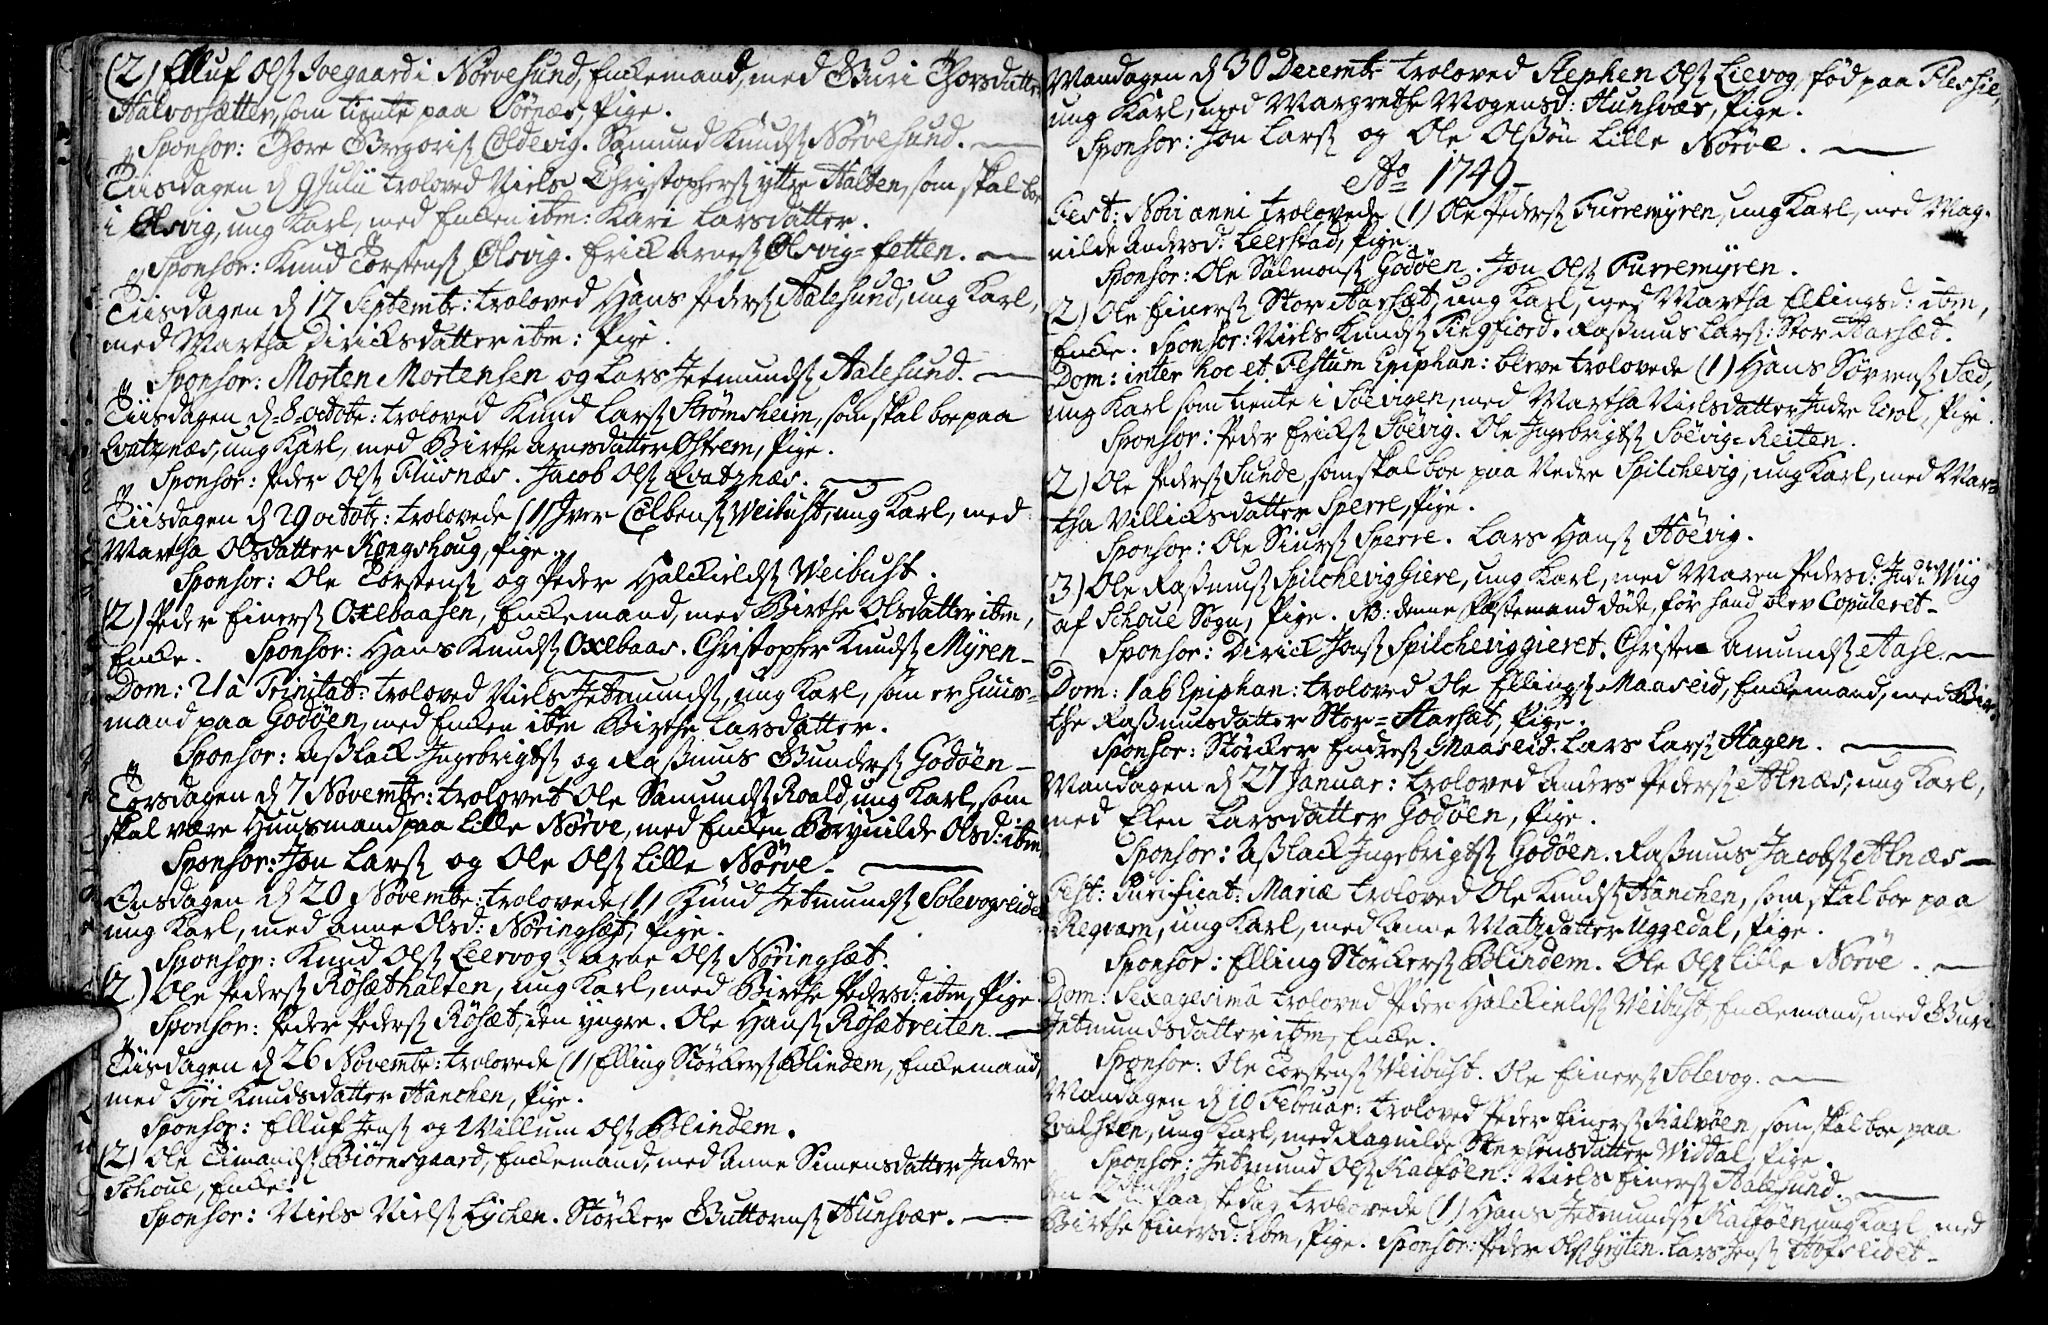 (2) Elluf Olß Joegaard i Nörvesund, Enckemand, med Guri Thorsdatter
Halvorsætter, som tiente paa Törnæs, Pige.
Sponsor: Thore Gregoriß Coldevig. Samund Knudß Nörvesund.
Tiisdagen d 9 Julii troloved Niels Christopherß yttre Halten, som skal boe
i Olsvig, ung Karl, med Encken ibm: Kari Larsdatter.
Sponsor: Knud Torstenß Olsvig. Erick Arneß Olsvig=fetten.
Tiisdagen d 17 Septembr: troloved Hans Pederß Aalesund, ung Karl,
med Martha Diricksdatter ibm: Pige.
Sponsor: Morten Mortensen og Lars Jetmundß Aalesund.
Tiisdagen d. 8 octobr: troloved Knud Larß Strømsheim, som skal boe paa
Qvatznæs, ung Karl, med Birthe Arnesdatter Østrem, Pige.
Sponsor: Peder Olß Fliisnæs. Jacob Olß Qvatznæs.
Tiisdagen d 29 octobr: trolovede (1) Jver Colbenß Weibust, ung Karl, med
Martha Olsdatter Kongshoug, Pige.
Sponsor: Ole Torstenß og Peder Halckieldß Weibust.
(2) Peder Einerß Oxebaasen, Enckemand, med Birthe Olsdatter ibm,
Encke. Sponsor: Hans Knudß Oxebaas. Christopher Knudß Myren
Dom: 21 à Trinitat: troloved Niels Jetmundß, ung Karl, som er huus=
mand paa Godøen, med Encken ibm Birthe Larsdatter.
Sponsor: Aßlack Jngebrigtß og Raßmus Gunderß Godöen
Torsdagen d 7 Novembr: trolovet Ole Samundß Roald, ung Karl, som
skal være Huusmand paa Lille Nörve, med Encken Brynilde Olsd: ibm
Sponsor: Jon Larß og Ole Olß Lille Nörve.
Onsdagen d 20 Novembr: trolovede (1) Knud Jetmundß Solevogseidet
ung Karl, med Anne Olsd: Nöringsæt, Pige.
Sponsor: Knud Olß Leervog. Arne Olß Nöringsæt.
(2) Ole Pederß Rösæthalten, ung Karl, med Birthe Pedersd: ibm, Pige
Sponsor: Peder Pederß Rösæt, den yngre. Ole Hanß Rösætreiten.
Tiisdagen d 26 Novembr: trolovede (1) Elling Störckerß Blindem, Enckemand,
med Tyri Knudsdatter Hanchen, Pige.
Sponsor: Elluf Jenß og Willum Olß Blindem.
(2) Ole Timandß Biörnsgaard, Enckemand, med Anne Simensdatter Jndre
Schoue, Encke.
Sponsor: Niels Nielß Lychen. Störcker Guttormß Hunsvær.
Mandagen d 30 Decembr troloved Stephen Olß Lievog, fød paa Flessie,
ung Karl, med Margrethe Mogensd: Hunsvær, Pige.
Sponsor: Jon Larß og Ole Olßön Lille Nörve.
Ao 1749
Fest: Novi anni trolovede (1) Ole Pederß Furremyren, ung Karl, med Mag-
nilde Andersd: Leerstad, Pige.
Sponsor: Ole Salmonß Godöen. Jon Olß Furremyren.
2) Ole Einerß Stor Aarsæt, ung Karl, med Martha Ellingsd: ibm,
Encke. Sponsor: Niels Knudß Fiegfiord. Raßmus Larß: Stor Aarsæt.
Dom: inter hoc et Festum Epiphan: bleve trolovede (1) Hans Sörrenß Sæd,
ung Karl som tiente i Soevigen, med Martha Nielsdatter Jndre Qvol, Pige.
Sponsor: Peder Erickß Söevig. Ole Jngebrigtß Soevig=Reiten.
2) Ole Pederß Sunde, som skal boe paa Nedre Spilchevig, ung Karl, med Mar=
tha Villicksdatter Sperre, Pige.
Sponsor: Ole Siurß Sperre. Lars Hanß Höevig.
3) Ole Raßmusß Spilcheviggiere, ung Karl, med Maren Pedersd: Jndre Wiig
af Schoue Sogn, Pige. NB: denne Fæstemand döde, för hand blev Copuleret
Sponsor: Dirick Jonß Spilcheviggieret. Christen Amundß Aase.
Dom: 1 ab Epiphan: troloved Ole Ellingß Maaseid, Enckemand, med Bir=
the Raßmusdatter Stor=Aarsæt, Pige.
Sponsor: Störcker Endreß Maaseid. Lars Larß Hagen.
Mandagen d 27 Januar: troloved Anders Pederß Alnæs, ung Karl,
med Elen Larsdatter Godöen, Pige.
Sponsor: Aßlack Jngebrigtß Godöen. Raßmus Jacobß Alnæs
Fest: Purificat: Mariæ troloved Ole Knudß Hanchen, som skal boe paa
Reqvam, ung Karl, med Anne Matzdatter Uggedal, Pige.
Sponsor: Elling Störckerß Blindem. Ole Olß Lille Nörve.
Dom: Sexagesimâ troloved Peder Halckieldß Veibust, Enckemand, med Guri
Jetmundsdatter ibm, Encke.
Sponsor: Ole Torstenß Weibust. Ole Einerß Solevog.
Mandagen d 10 Februar: troloved Peder Einerß Kalvöen, som skal boe paa
Qvalsten, ung Karl, med Ragnilde Stephensdatter Widdal, Pige.
Sponsor: Jetmund Olß Kalföen. Niels Einerß Aalesund.
paa dag trolovede (1) Hans Jetmundß Kalföen, ung Karl, med
Birthe Einersd: ibm, Pige. Sponsor: Peder Olß Gryten. Lars Jenß Hofseidet